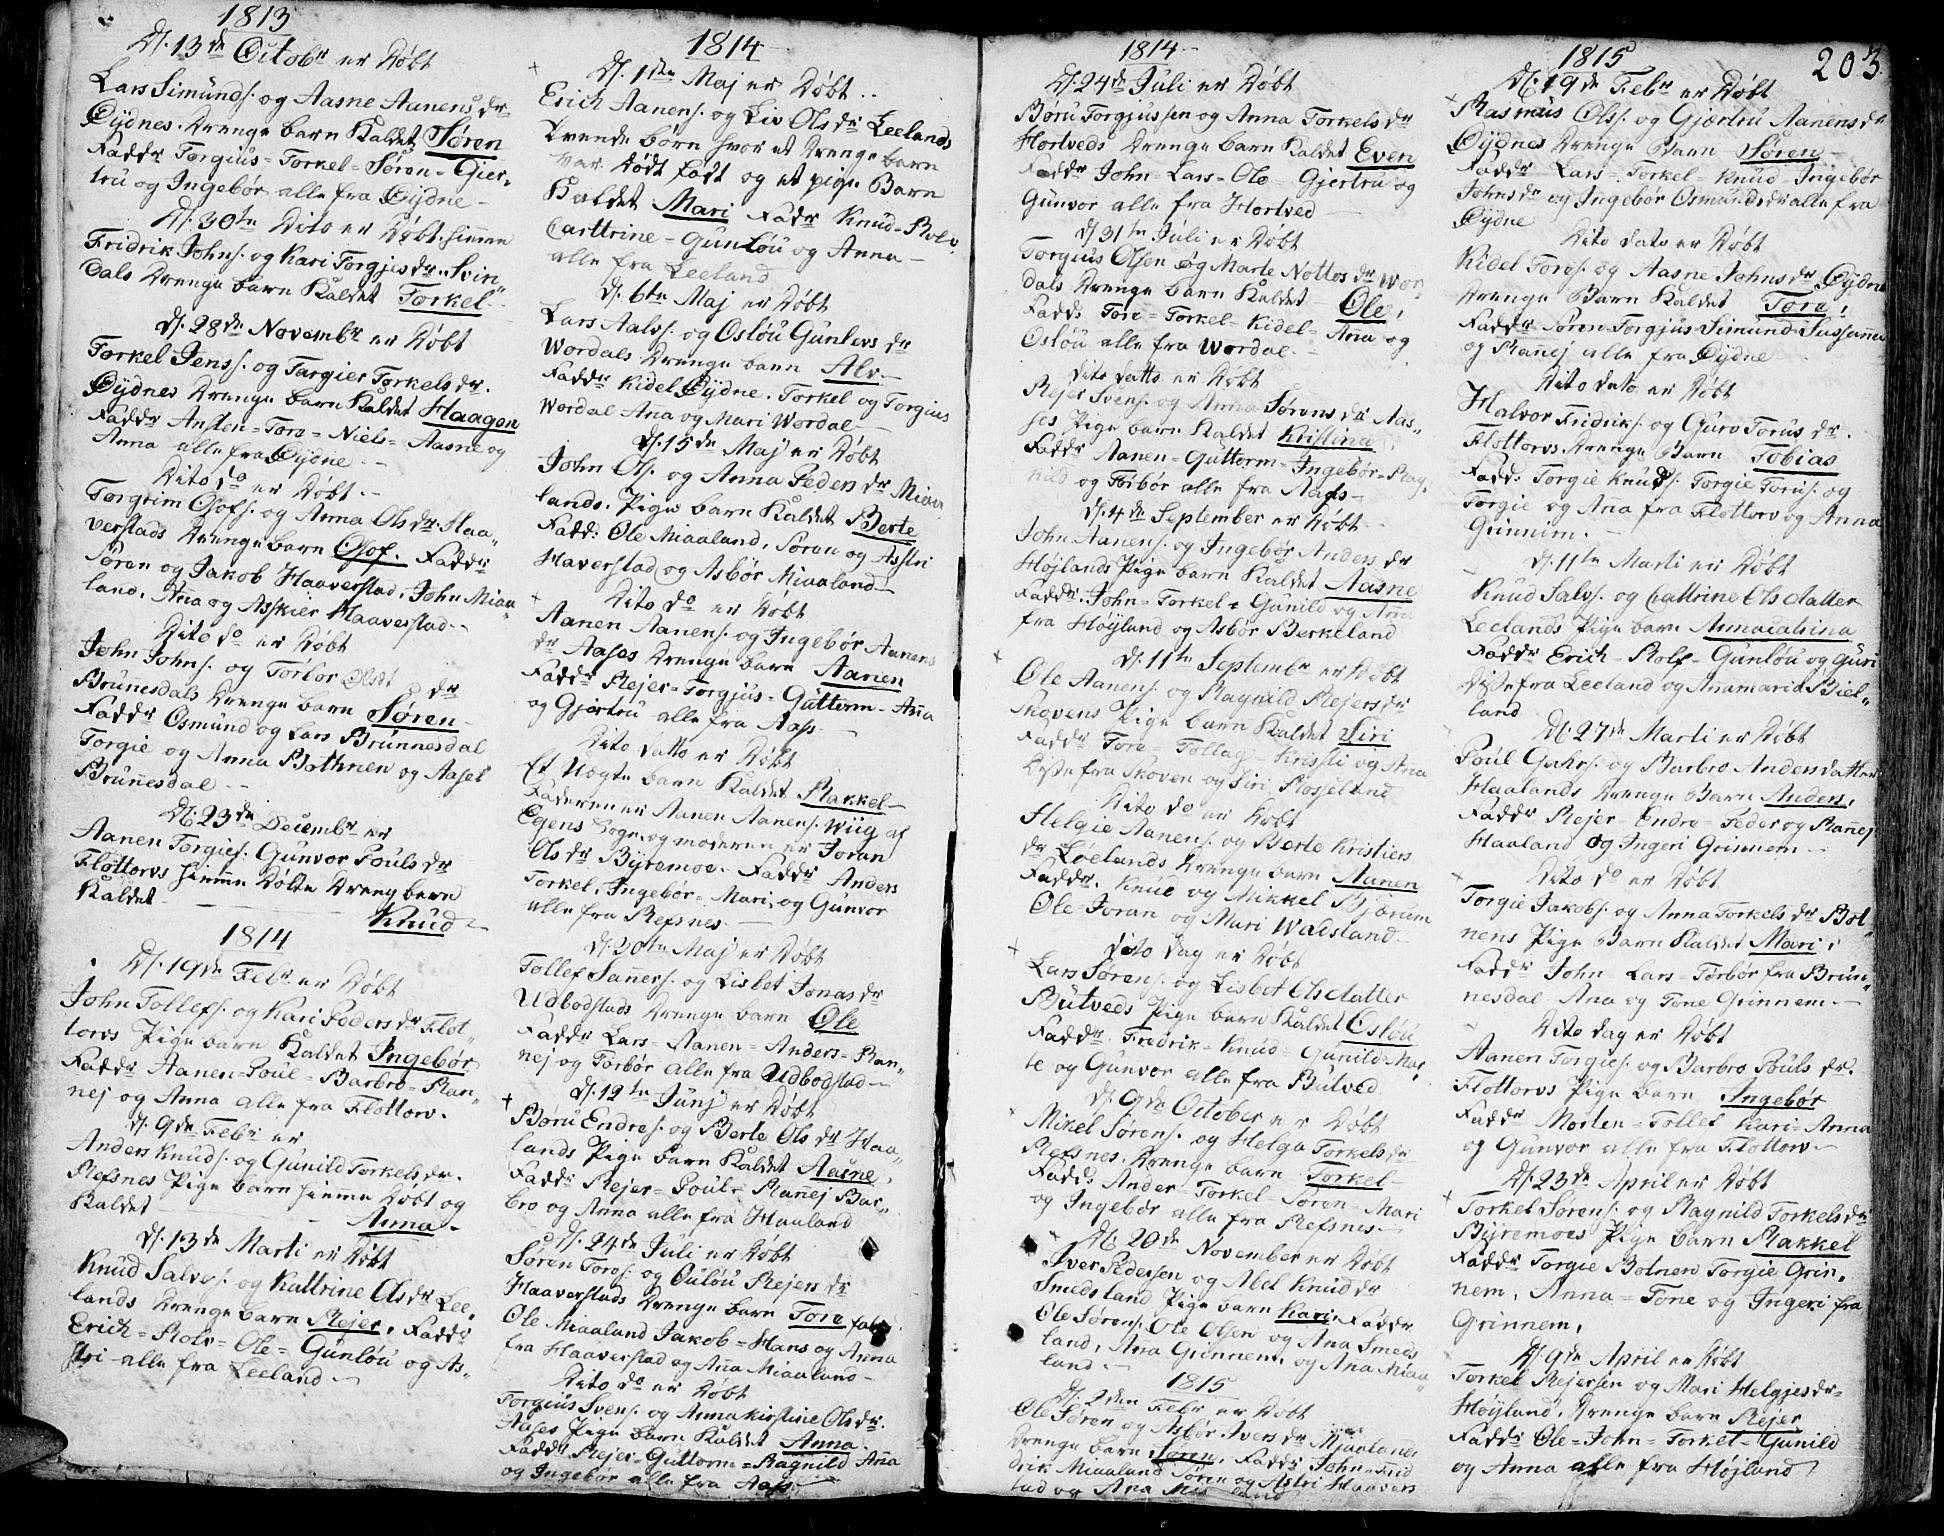 1813
D. 13de Octobr er Døbt
Lars Simunds. og Aasne Aanensdr
Øydnes. Drenge barn Kaldet Søren
Faddr Torgius = Torkel = Søren = Gier,
tru og Ingebør alle fra Øydne -
D. 30te Dito er Døbt hiemme
Fridrik Johns. og Kari Torgjesdr Svin,,
dals Drenge barn Kaldet Torkel
D. 28de Novembr er Døbt
Torkel Jenss. og Targier Torkelsdr.
Øydnes Drenge barn Kaldet Haagon
Faddr Ansten = Tore = Niels = Aasne og
Anna alle fra Øydne -
Dito do er Døbt -
Torgrim Olofs. og Anna Olsdr. Haa,,
verstads Drenge barn Olof. Faddr
Søren og Jakob Haaverstad, John Miaa,,
land, Aña og Asskier Haaverstad -
Dito do er Døbt
John Johns. og Torbor dr
Bruñesdals Drenge barn Søren -
Faddr Osmund og Lars Brunnesdal
Torgie og Anna Bothnen og Aasel
Bruñesdal -
D. 23de Decembr er
Aanen Torgies. Gunvor Poulsdr
Flottorvs hiemme Døbte Dreng barn
Kaldet Knud
1814
D. 19de Febr er Døbt
John Tollefs. og Kari Pedersdr Flot,,
torvs Pige barn Kaldet Ingebør
Faddr Aanen = Poul = Barbro = Ran,,
nej og Anna alle fra Flottorv.
D. 9de Febr er
Anders Knuds. og Gunild Torkelsdr.
Refsnes Pige barn hiemme Døbt og
Kaldet Anna -
D. 13de Marti er Døbt
Knud Salves. og Kattrine Olsdr Lee,
lands Drenge barn Rejer, Faddr
Erich = Rolv = Ole = Gunlou og As,,
stri alle fra Leeland -
1814
D. 1den Maj er Døbt ..
Erich Aanens. og Liv Olsdr Leelands
Tvende børn hvor et Drenge barn
var Dødt født og et pige Barn
Kaldet Mari Fadr Knud = Rolv
Cattrine = Gunlou og Anna -
alle fra Leeland
D. 6te Maj er Døbt
Lars Aalvs. og Oslou Gunlevsdr
Wordals Drenge barn Alv -
Faddr Kidel Øydne. Torkel og Torgius
Wordal Ana og Mari Wordal -
D. 15de Maj er Døbt
John Ols. og Anna Pedersdr Miaa
lands. Pige barn Kaldet Berte
Fadd: Ole Miaaland, Søren og Asstri
Haverstad og Asbør Miaaland -
Dito do er Døbt
Aanen Aanens. og Ingebør Aanens
dr Aases Drenge barn Aanen
Faddr Rejer = Torgjus = Guttorm = Aña
og Gjertru alle fra Aass -
Dito datto er Døbt
Et Uægte barn Kaldet Rakkel -
Faderen er Aanen Aanens. Wiig af
Egens Sogn, og moderen er Joran
Olsdr Byremoe - Faddr Anders
Torkel, Ingebør = Mari, og Gunvor
alle fra Refsnes -
D. 20te Maj er Døbt
Tollef Sañers. og Lisbet Jonasdr
Udbodstads Drenge barn Ole
Faddr Lars = Aanen = Anders = Ran,,
nej og Torbør alle fra Udbodstad -
D. 12te Junj er Døbt
Børu Endres. og Berte Olsdr Haa,,
lands Pige barn Kaldet Aasne,
Faddr Rejer = Poul = Rañej Bar,,
bro og Anna alle fra Haaland
D. 24de Juli er Døbt
Søren Tores. og Oulou Rejersdr
Haaverstads Drenge barn Tore fad.
Ole Miaaland Jakob = Hans og Anna
fra Haaverstad og Aña Miaaland -
Dito do er Døbt
Torgius Svens. og Anna Kirstine Olsdr.
Aases Pige barn Kaldet Anna.
Faddr Rejer = Guttorm = Ragnild Aña
og Ingebor alle fra Aass -
1814
D. 24de Juli er Døbt
Børu Torgjussen og Anna Torkelsdr
Hortveds Drenge barn Kaldet Even
Faddr John = Lars = Ole = Gjertru og
Gunvor alle fra Hortved
D. 31te Juli er Døbt
Torgius Olsen og Marte Nottesdr Wor,
dals Drenge barn Kaldet Ole,
Fadd: Tore = Torkel = Kidel = Ana og
Oslou alle fra Wordal -
Dito datto er Døbt
Rejer Svens. og Anna Sørensdr Aas,,
ses Pige barn Kaldet Kristina
Faddr Aanen = Guttorm = Ingebør = Rag,
nild og Torbør alle fra Aass -
D. 4de September er Døbt
John Aanens. og Ingebør Andersdr
Højlands Pige barn Kaldet Aasne
Faddr. John = Torkel = Gunild og Anna
fra Høyland og Asbør Berkeland
D. 11te Septembr er Døbt
Ole Aanens. og Ragnild Rejersdr
Skovens Pige barn Kaldet Siri
Faddr Tore = Tollag = Kirsti og Aña
Disse fra Skoven og Siri Rosseland
Dito do er Døbt
Helgie Aanens. og Berte Kristiens
dr Løelands Drenge barn Aanen
Faddr. Knud og Mikkel Bjorum
Ole = Joran og Mari Wadsland -
Dito dag er Døbt
Lars Sørens. og Lisbet Olsdatter
Butveds Pige barn Kaldet Oslou
Faddr. Fredrik = Knud = Gunild = Mar,
te og Gunvor alle fra Butved
D. 9de October er Døbt
Mikel Sørens. og Helga Torkelsdr
Refsnes. Drenge barn Torkel -
Fadd: Ander = Torkel = Søren = Mari
og Ingebør alle fra Refsnes -
D. 20de November er Døbt
Iver Pedersen og Abel Knudsdr
Smedsland Pige barn Kari. Faddr
Ole Sørens. Ole Olsen og Ana Smeds
land, Ana Guñnem, og Ana Miaa,,
land -
1815
D. 2den Febr er Døbt
Ole Søren og Asbør Iversdr Mjaalands
Drenge barn Søren, Faddr John = Frid
drik Miaaland Søren og Astri Haavers
tad og Ana Miaaland
1815
203.
D. 19de Febr er Døbt
Rasmus Ols. og Gjærtru Aanensdr
Øydnes Drenge Barn Søren -
Faddr Lars = Torkel = Knud = Ingebør
Johnsdr og Ingebør Osmundsdr alle fra
Øydne
Dito dato er Døbt
Kidel Tores. og Aasne Johnsdr Øydne
Drenge Barn Kaldet Tore,
Faddr Søren = Torgjus = Simund = Sussanna
og Rañej alle fra Øydne
Dito dato er Døbt
Halvor Fridriks. og Guro Torusdr.
Flottorvs Drenge Barn Tobias
Fadd: Torgie Knuds. Torgie Torus. og
Torgie og Aña fra Flottorv og Anna
Grinnim. -
D. 11te Marti er Døbt
Knud Salvs. og Cattrine Olsdatter
Leelands Pige barn Annacatrina
Faddr Erich = Rolf = Gunlou og Guri
Disse fra Leeland og Añamaria Biel,,
land
D. 27de Marti er Døbt
Poul Gahrs. og Barbro Andersdatter
Haalands Drenge Barn Anders,
Faddr Rejer = Endre = Peder og Rañej
Haaland og Ingeri Grinnem -
Dito do er Døbt
Torgie Jakobs. og Anna Torkelsdr Bot,,
nens Pige Barn Kaldet Mari,
Faddr John = Lars = Torbør fra Brun,,
nesdal - Ana og Tone Grinnem -
Dito dag er Døbt
Aanen Torgies. og Barbro Poulsdr.
Flottorvs Pige barn Ingebør
Faddr Morten = Tollef Kari = Anna
og Gunvor alle fra Flottorv -
D. 23de April er Døbt
Torkel Sørens. og Ragnild Torkelsdr
Byremoes Pige barn Rakkel
Faddr Torgie Botnen Torgie Grin,
nem, Anna = Tone og Ingeri fra
Grinnem,
D. 9de April er Døbt
Torkel Rejersen og Mari Helgjesdr
Høyland. Drenge barn Rejer
Faddr Ole = John = Torkel = Gunild
og Anna alle fra Højland